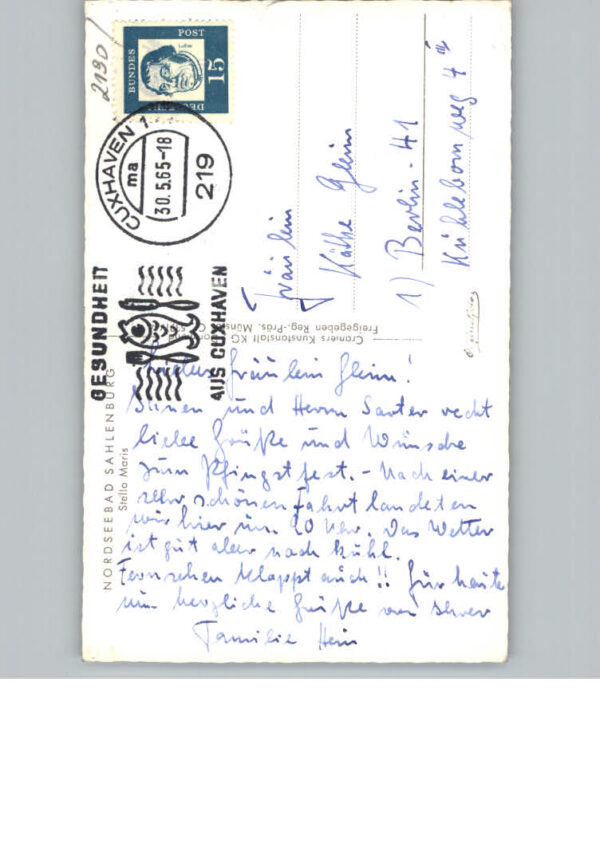 2190
DEUTSCHE
BUNDES
POST
15
CUXHAVEN 1
ma
30.5.65-18
219
GESUNDHEIT
AUS CUXHAVEN
NORDSEEBAD SAHLENBURG
Stella Maris
Cramers Kunstanstalt KG
Freigegeben Reg.-Präs. Münster
Fräulein
Käthe Gleim
1) Berlin-41
Kühlebornweg 4
Fräulein Gleim!
Ihnen und Herrn Sauter recht
liebe Grüße und Wünsche
zum Pfingstfest. - Nach einer
sehr schönen Fahrt landeten
wir hier um 20 Uhr. Das Wetter
ist gut aber noch kühl.
Fernsehen klappt auch!! Für heute
nun herzliche Grüße von Ihrer
Familie Hein